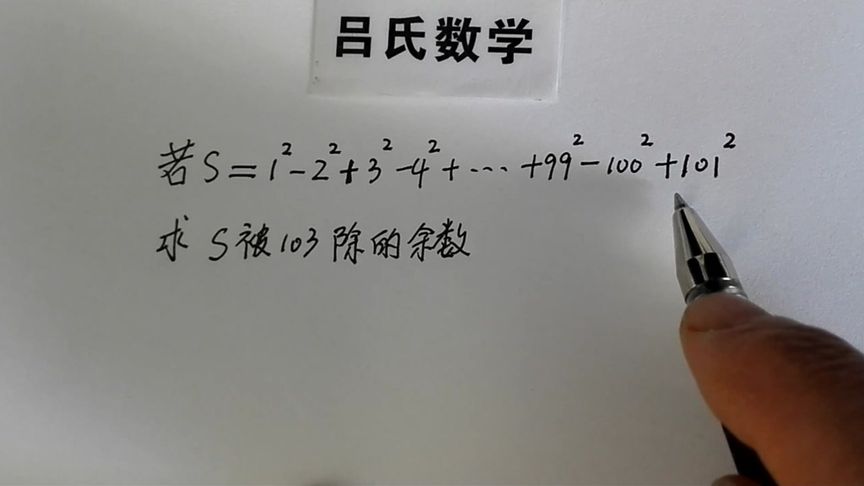 吕氏数学
若S=1²-2²+3²-4²+⋯+99²-100²+101²
求 S被103除的余数